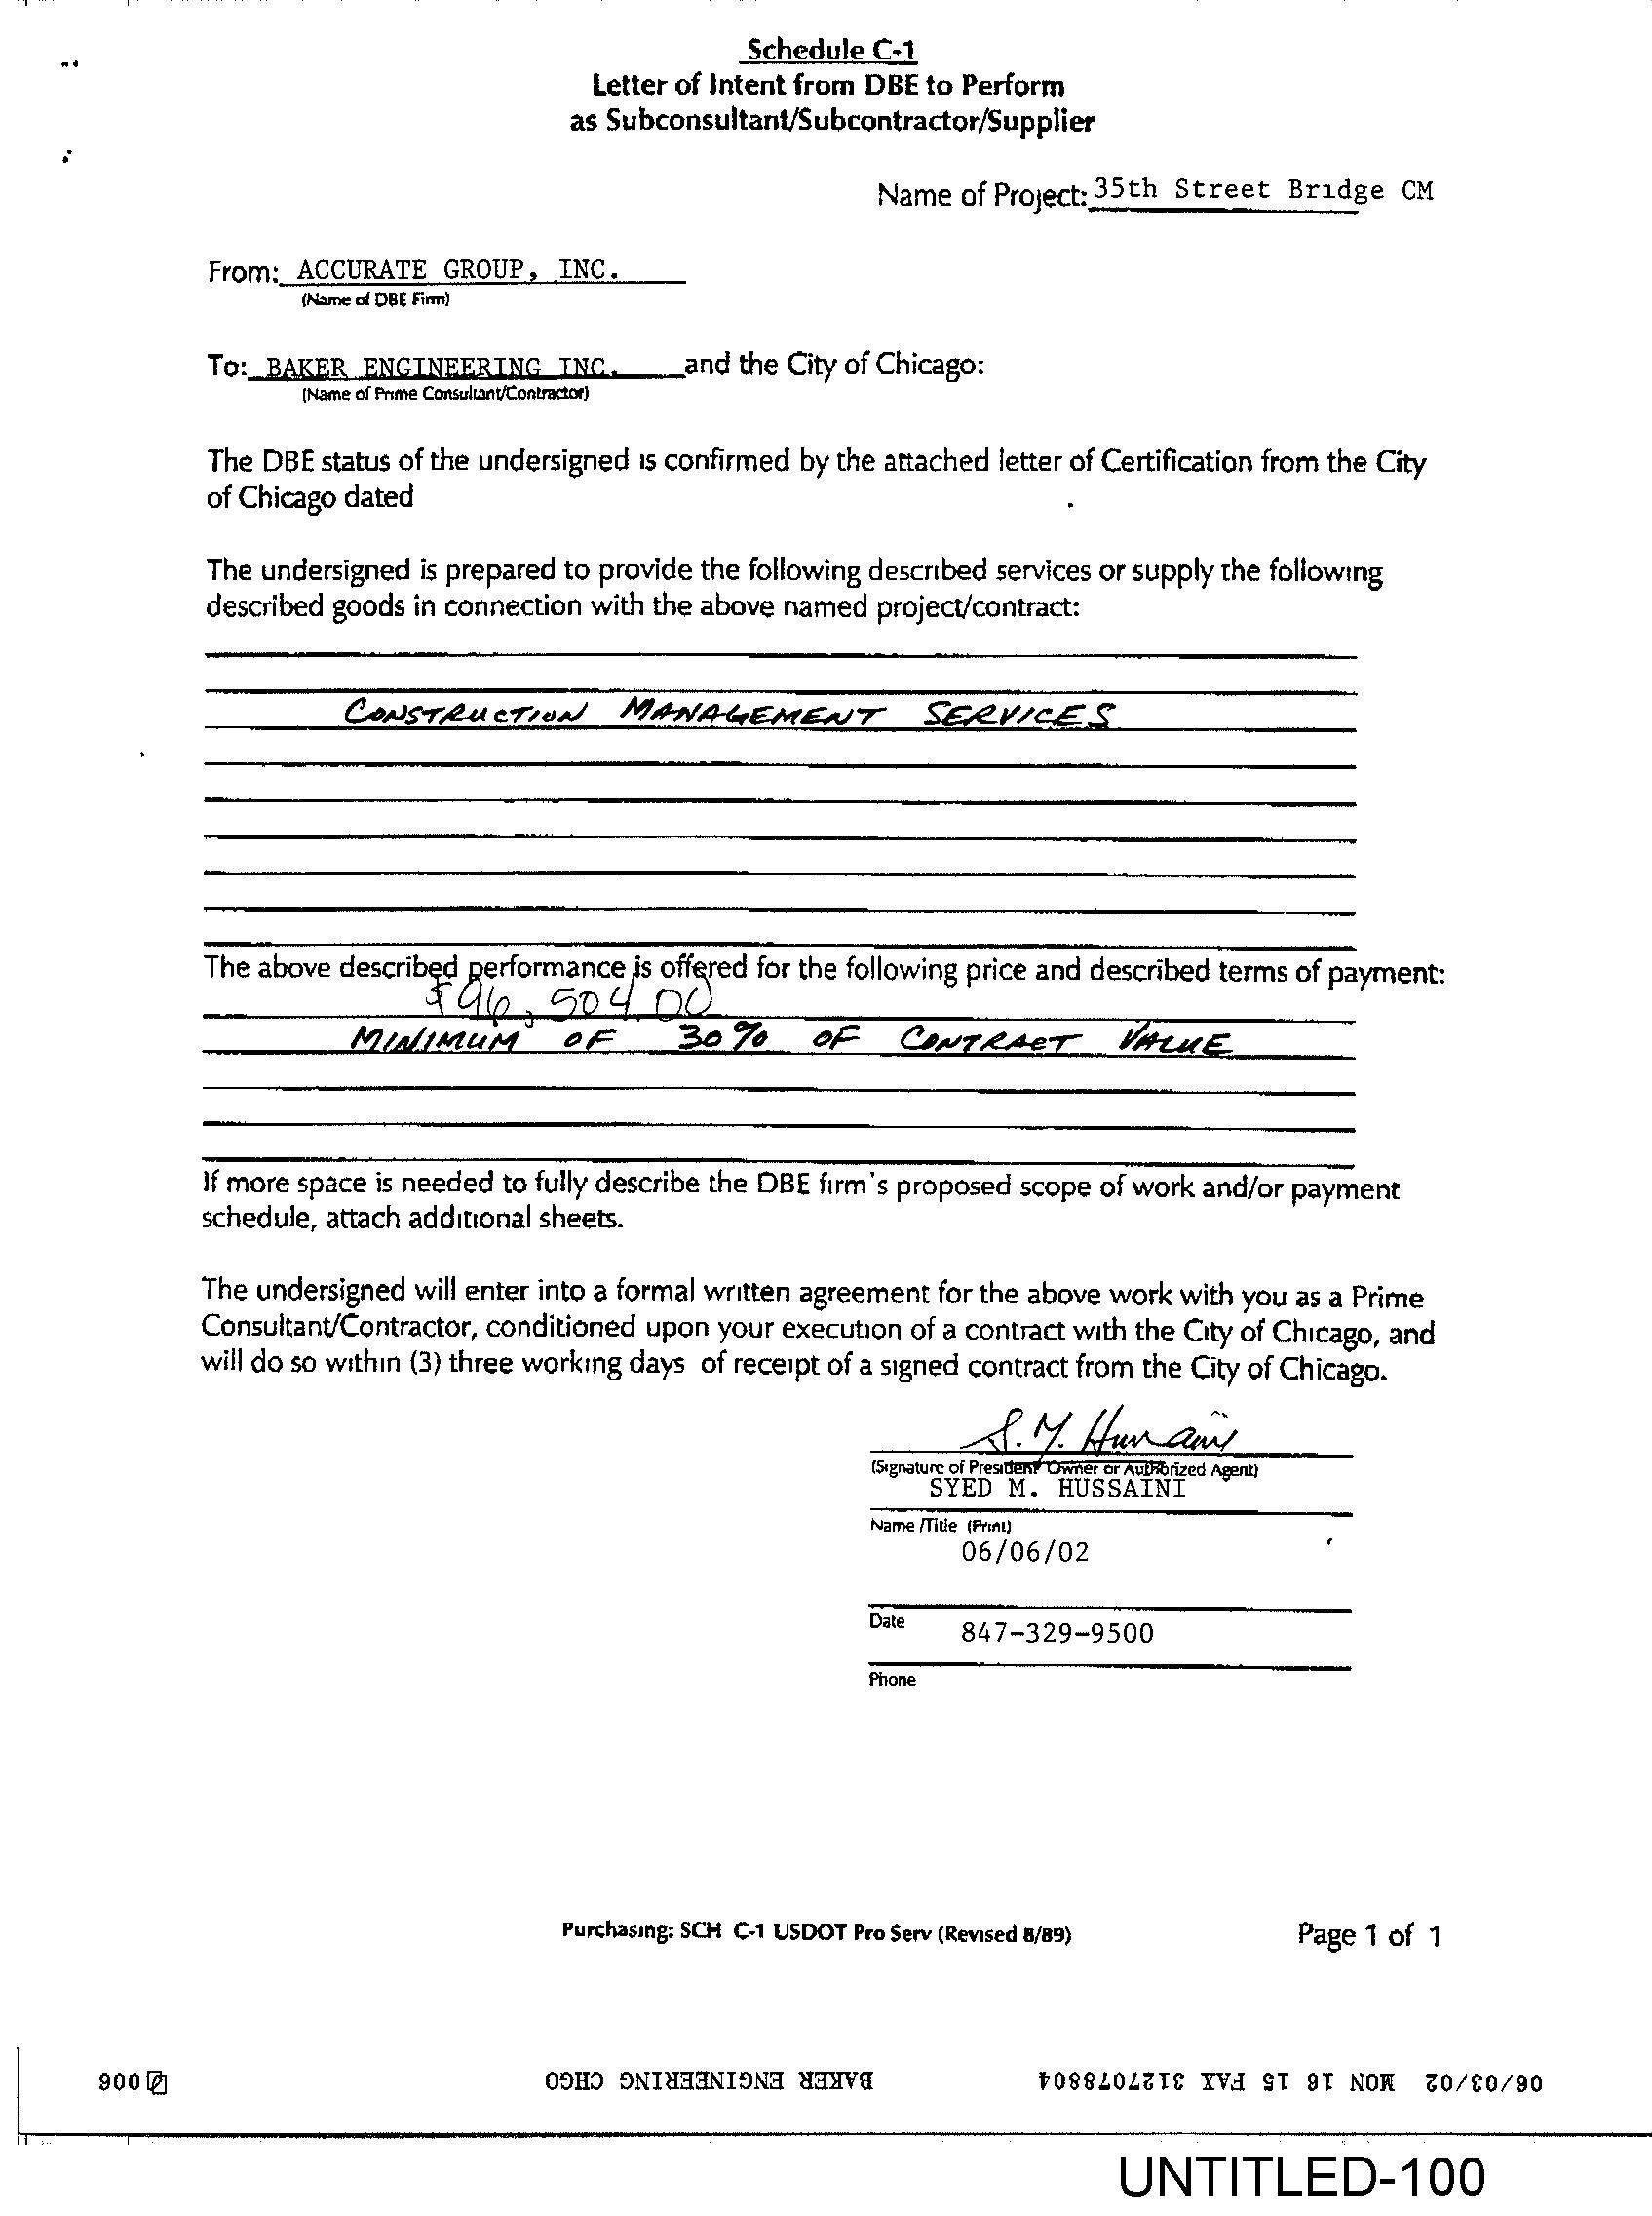 Schedule C-1
Letter of Intent from DBE to Perform
as Subconsultant/Subcontractor/Supplier
Name of Project: 35th Street Bridge CM
From: ACCURATE GROUP, INC.
(Name of DBE Firm)
To: BAKER ENGINEERING INC. and the City of Chicago:
(Name of Prime Consultant/Contractor)
The DBE status of the undersigned is confirmed by the attached letter of Certification from the City
of Chicago dated
The undersigned is prepared to provide the following described services or supply the following
described goods in connection with the above named project/contract:
CONSTRUCTION MANAGEMENT SERVICES
The above described performance is offered for the following price and described terms of payment:
$96,504.00
MINIMUM OF 30% OF CONTRACT VALUE
If more space is needed to fully describe the DBE firm's proposed scope of work and/or payment
schedule, attach additional sheets.
The undersigned will enter into a formal written agreement for the above work with you as a Prime
Consultant/Contractor, conditioned upon your execution of a contract with the City of Chicago, and
will do so within (3) three working days of receipt of a signed contract from the City of Chicago.
S. M. Hussaini
(Signature of President Owner or Authorized Agent)
SYED M. HUSSAINI
Name /Title (Print)
06/06/02
Date
847-329-9500
Phone
Purchasing: SCH C-1 USDOT Pro Serv (Revised 8/89)
Page 1 of 1
06/03/02 MON 16 15 FAX 3127078804 BAKER ENGINEERING CHGO 006
UNTITLED-100